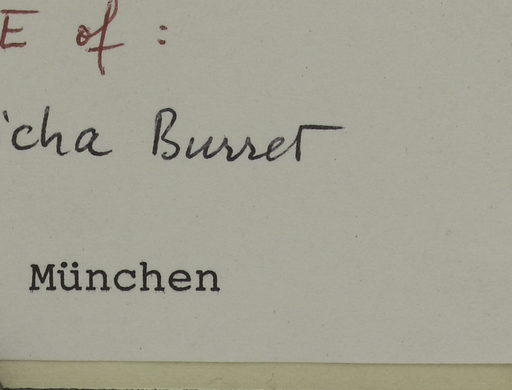 E of :
icha Burret
München